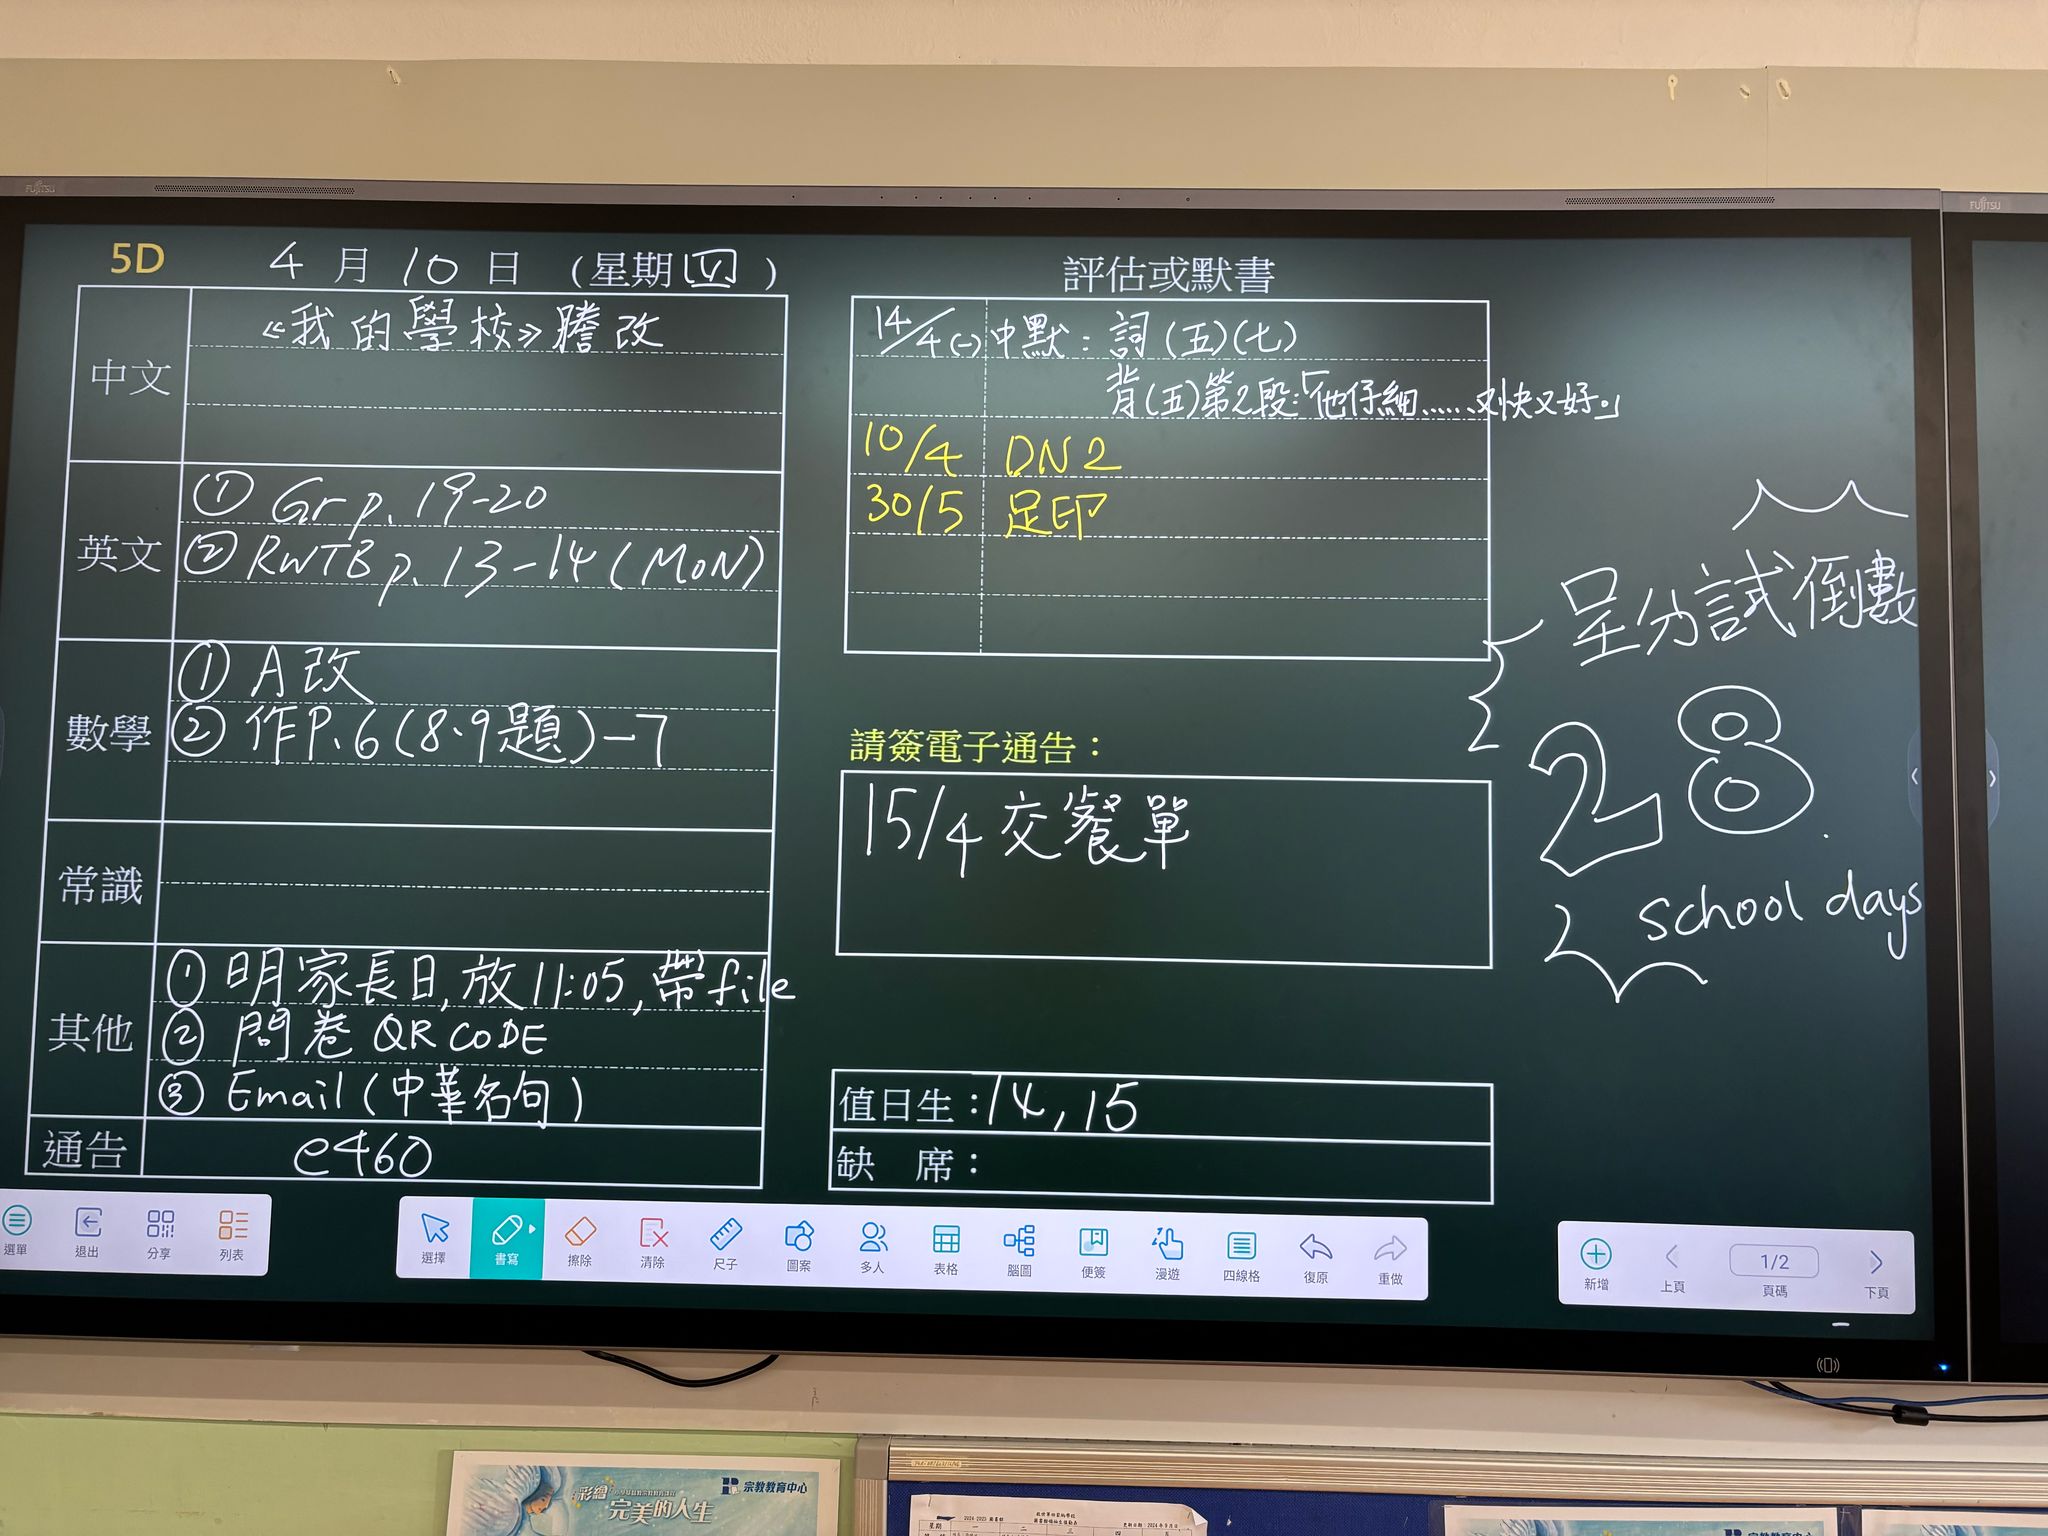 FUJITSU
FUJITSU
5D
4月10日（星期四）
中文
《我的學校》謄改
英文
① Gr p.19-20
② RWTB p.13-14 (MON)
數學
① A改
② 作P.6(8、9題)-7
常識
其他
① 明家長日,放11:05,帶file
② 問卷 QR CODE
③ Email (中華名句)
通告
e460
評估或默書
14/4(一) 中默：詞(五)(七)
背(五)第2段:「他仔細……又快又好。」
10/4 DN2
30/5 足印
請簽電子通告：
15/4 交餐單
值日生：14, 15
缺 席：
呈分試倒數
28
school days
選單 退出 分享 列表
選擇 書寫 擦除 清除 尺子 圖案 多人 表格 腦圖 便簽 漫遊 四線格 復原 重做
新增 上頁 1/2 頁碼 下頁
彩繪
完美的人生
宗教教育中心
2024-2025
星期 一 二 三 四
宗教教育中心